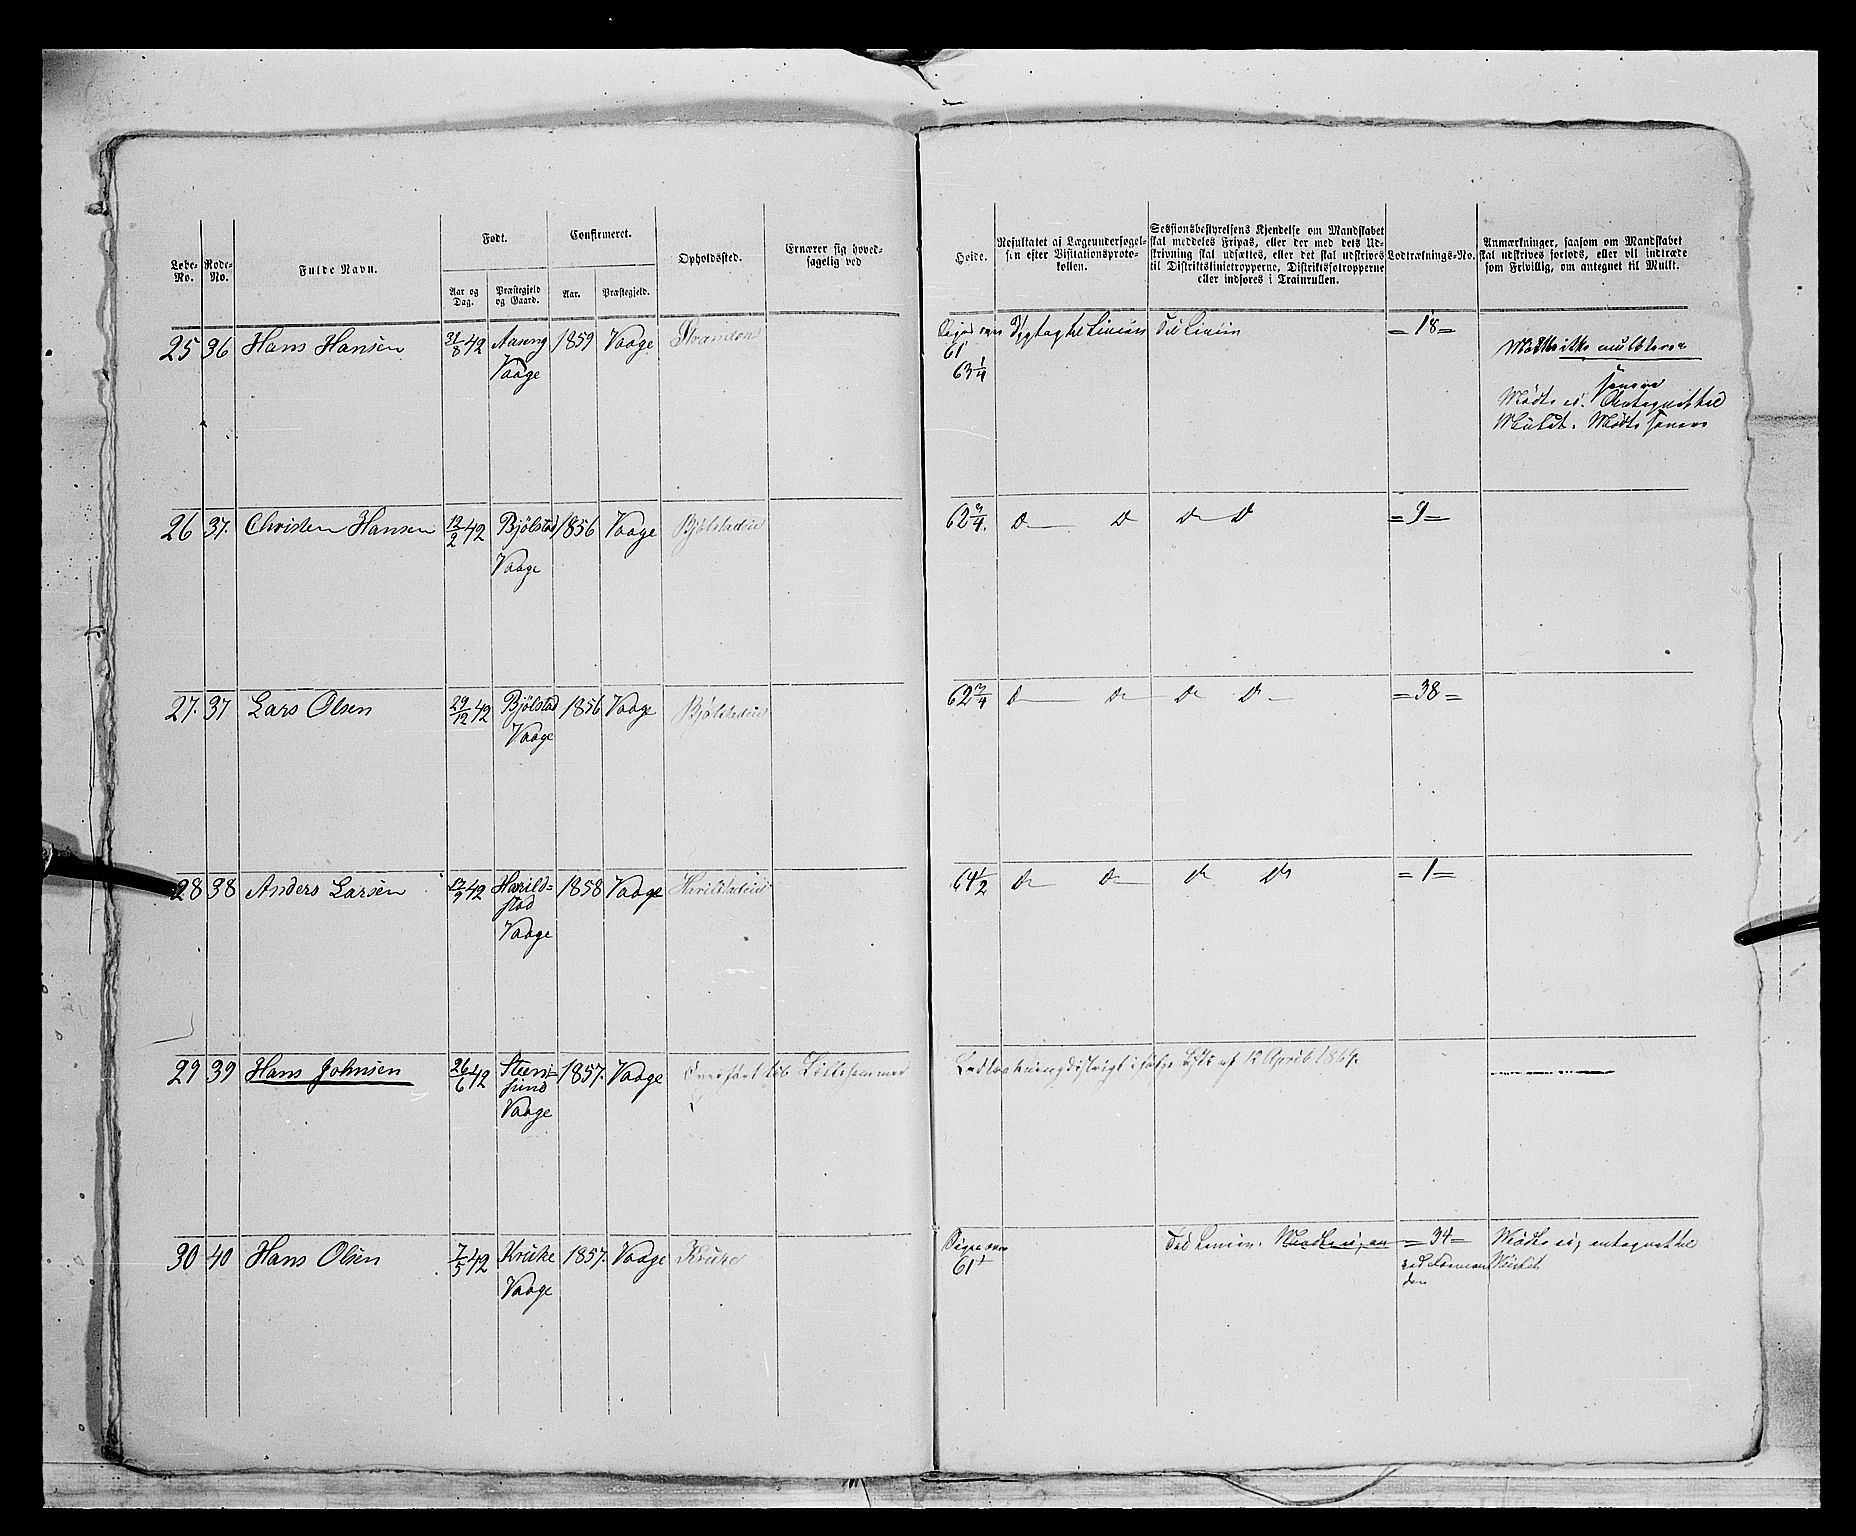 Løbe-No.
Rode-No.
Fulde Navn.
Født.
Aar og Dag.
Præstegjeld og Gaard.
Confirmeret.
Aar.
Præstegjeld.
Opholdssted.
Ernærer sig hoved-
sagelig ved
Høide.
Resultatet af Lægeundersøgel-
sen efter Visitationsproto-
kollen.
Sessionsbestyrelsens Kjendelse om Mandskabet
skal meddeles Fripas, eller der med dets Ud-
skrivning skal udsættes, eller det skal udskrives
til Distriktslinietropperne, Distriktsfotropperne
eller indføres i Trainrullen.
Lodtræknings-No.
Anmærkninger, saasom om Mandskabet
skal udskrives forlods, eller vil indtræde
som Frivillig, om antegnet til Mulkt.
25 36 Hans Hansen 31/8 42 Aaseng 1859 Vaage Stranden
Vaage
61
63 1/4
Dygtig til Linien Til Linien = 18 =
Mødte ei. Antegnet til
Mulct. Mødte senere
26 37. Christen Hansen 12/2 42 Bjölstad 1856 Vaage Bjölstadeie
Vaage
62 3/4. D D D D = 9 =
27. 37 Lars Olsen 29/12 42 Bjölstad 1856 Vaage Bjölstadeie
Vaage
62 3/4 D D D D = 38 =
28 38 Anders Larsen 12/9 42 Harild- 1858 Vaage Harildstadeie
stad
Vaage
64 1/2 D D D D = 1 =
29 39 Hans Johnsen 26/6 42 Steen- 1857. Vaage Overført til Lillehammer
sund
Vaage
Lodtrækningsdistrigt ifølge af 12 April 1864.
30 40 Hans Olsen 7/5 42 Kruke 1857. Vaage Kruke
Vaage
61
Til Linien. = 34 = Mødte ei, antegnet til
Mulct